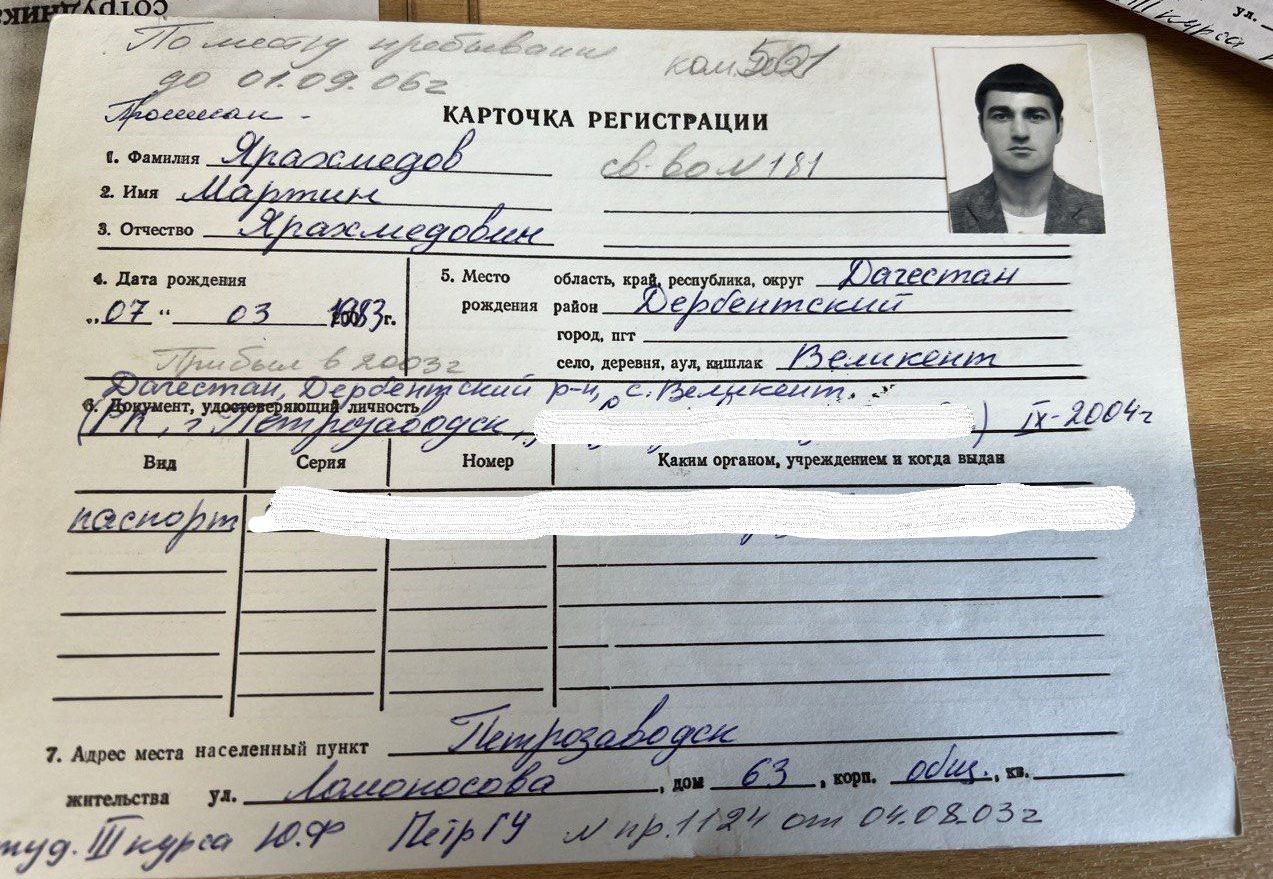 сотрудника
ул.
III курса
По месту пребывания ком. 501
до 01.09.06г
Прописан -
КАРТОЧКА РЕГИСТРАЦИИ
1. Фамилия Ярахмедов св-во N 181
2. Имя Мартин
3. Отчество Ярахмедович
4. Дата рождения
„07“ 03 1983г.
Прибыл в 2003г
5. Место рождения область, край, республика, округ Дагестан
район Дербентский
город, пгт
село, деревня, аул, кишлак Великент
Дагестан, Дербентский р-н, с. Великент.
6. Документ, удостоверяющий личность
(РК, г. Петрозаводск, ) IX-2004г
Вид Серия Номер Каким органом, учреждением и когда выдан
паспорт
7. Адрес места населенный пункт Петрозаводск
жительства ул. Ломоносова, дом 63, корп. общ., кв.
студ. III курса Ю.Ф ПетрГУ N пр. 1124 от 04.08.03г